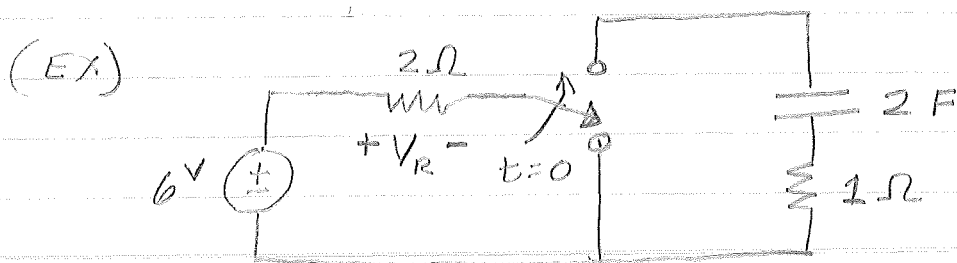 (EX)
2Ω
+ V_R -
t=0
6V
+
-
2 F
1 Ω